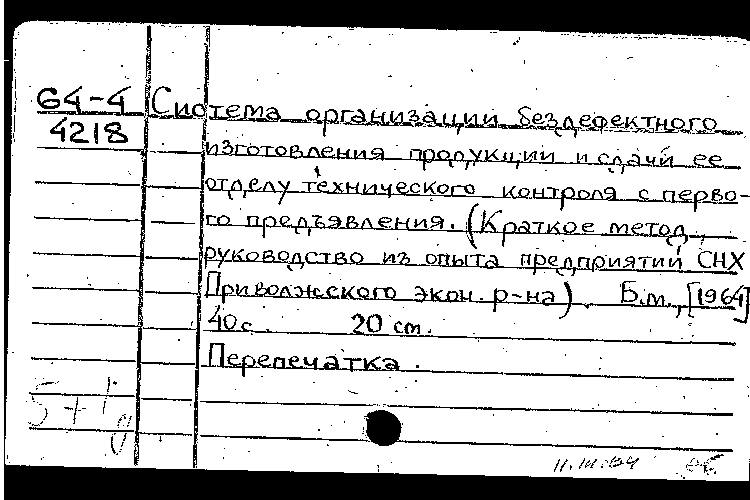 64-4 Система организации бездефектного
4218
изготовления продукции и сдачи ее
отделу технического контроля с перво-
го предъявления. (Краткое метод.
руководство из опыта предприятий СНХ
Приволжского экон. р-на). Б.м., [1964]
40 с. 20 см.
Перепечатка.
11.III.64